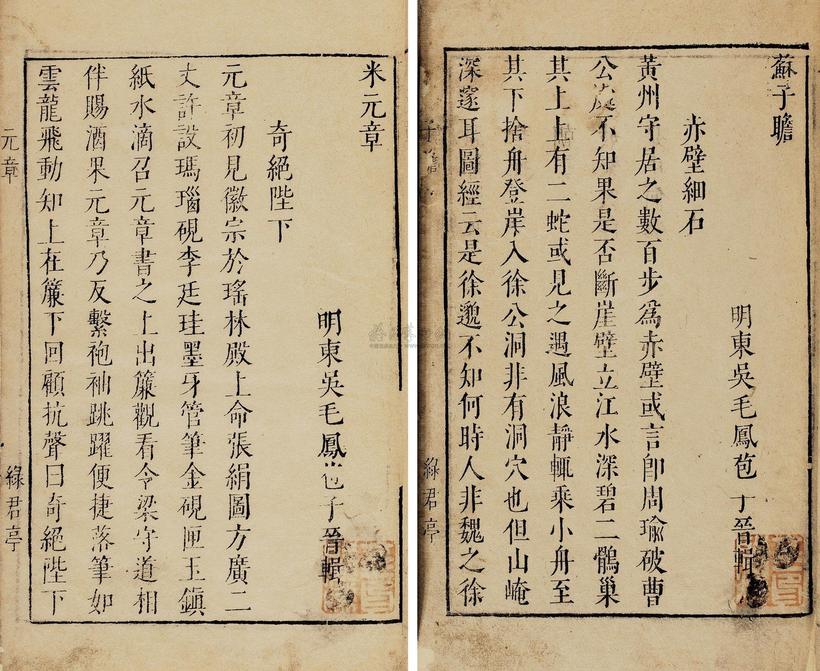 蘇子瞻
明東吳毛鳳苞子晉輯
赤壁細石
黃州守居之數百步爲赤壁或言卽周瑜破曹
公處不知果是否斷崖壁立江水深碧二鶻巢
其上上有二蛇或見之遇風浪靜輒乘小舟至
其下捨舟登岸入徐公洞非有洞穴也但山崦
深邃耳圖經云是徐邈不知何時人非魏之徐
子瞻
綠君亭
米元章
明東吳毛鳳苞子晉輯
奇絕陛下
元章初見徽宗於瑤林殿上命張絹圖方廣二
丈許設瑪瑙硯李廷珪墨牙管筆金硯匣玉鎮
紙水滴召元章書之上出簾觀看令梁守道相
伴賜酒果元章乃反繫袍袖跳躍便捷落筆如
雲龍飛動知上在簾下回顧抗聲曰奇絕陛下
元章
綠君亭